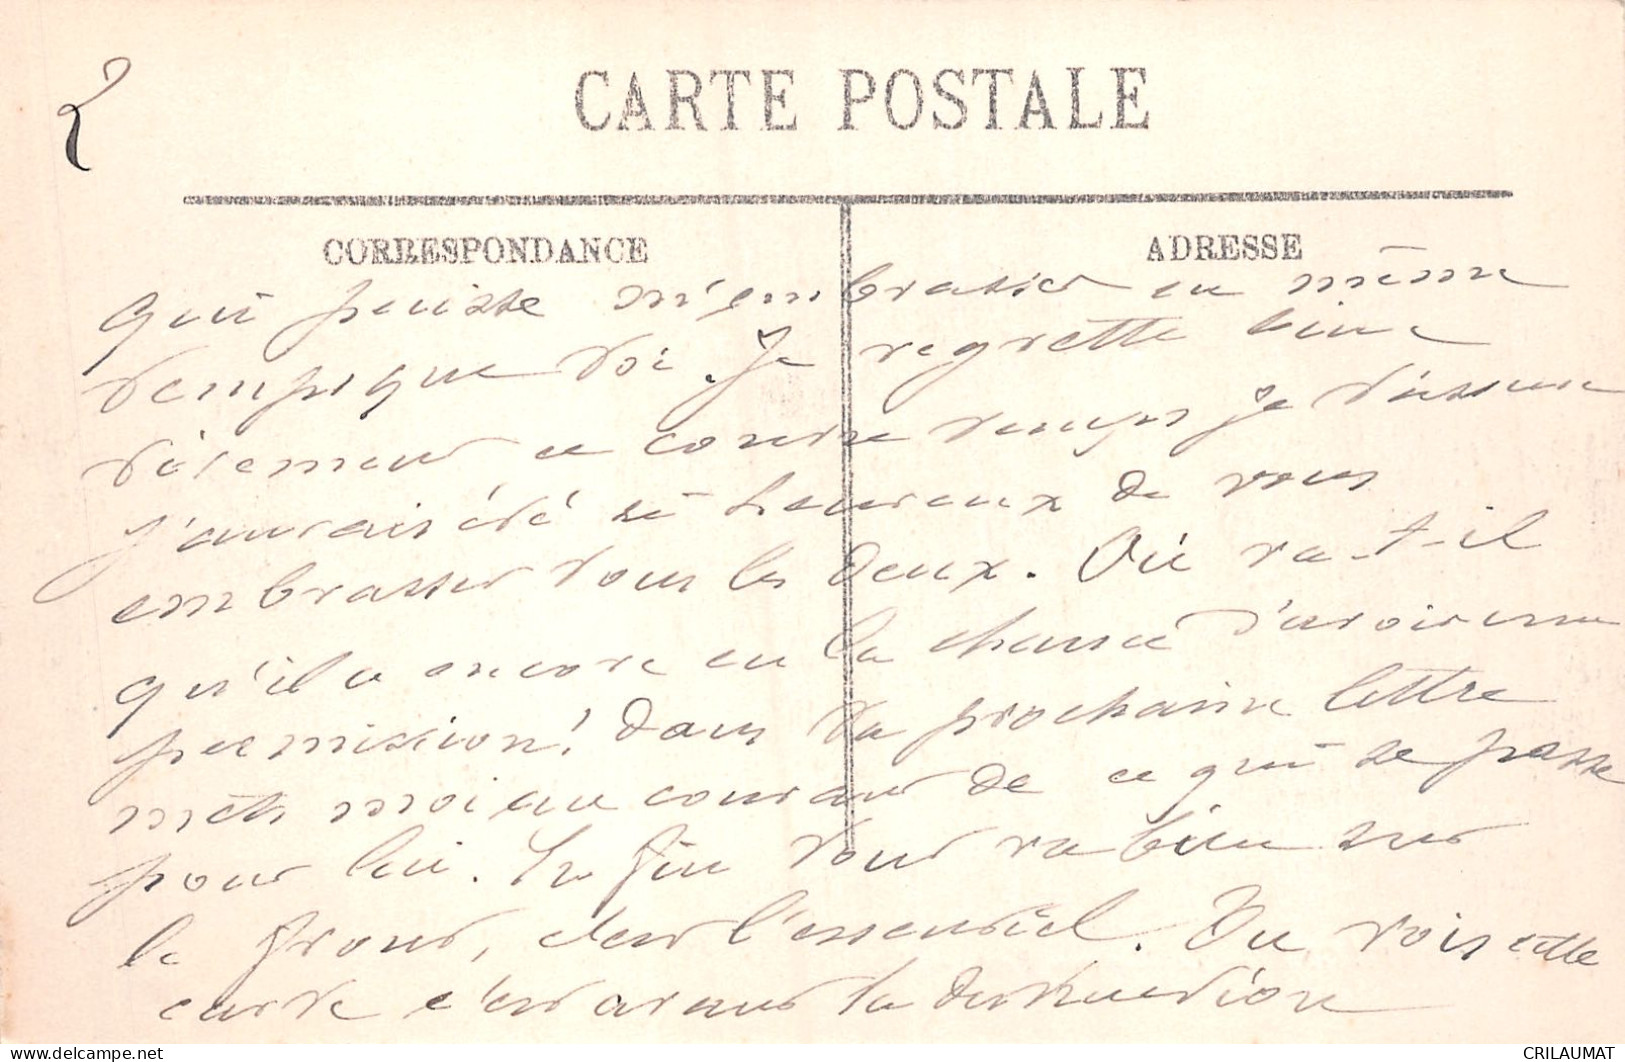 2
CARTE POSTALE
CORRESPONDANCE
ADRESSE
qui puisse m'embrasser en même
temps que toi. Je regrette bien
ce contre temps je t'assure
j'aurais été si heureux de vous
embrasser tous les deux. Où va-t-il
qu'il a encore eu la chance d'avoir une
permission! dans ta prochaine lettre
mets moi au courant de ce qui se passe
pour lui. En fin tout va bien sur
le front, c'est l'essentiel. Tu vois cette
carte c'est avant la destruction
CRILAUMAT